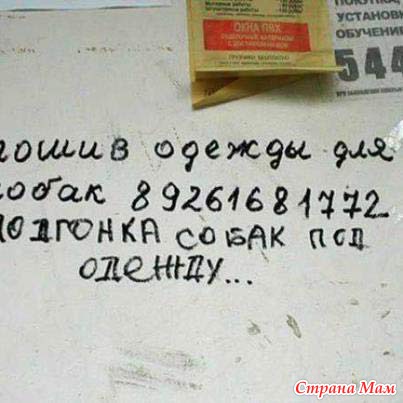 ПОКУПКА,
УСТАНОВК
ОБУЧЕНИЕ
544
ОКНА ПВХ
ГРУЗЧИКИ БЕСПЛАТНО
ошив одежды для
обак 89261681772
ПОДГОНКА СОБАК ПОД
ОДЕЖДУ...
Страна Мам